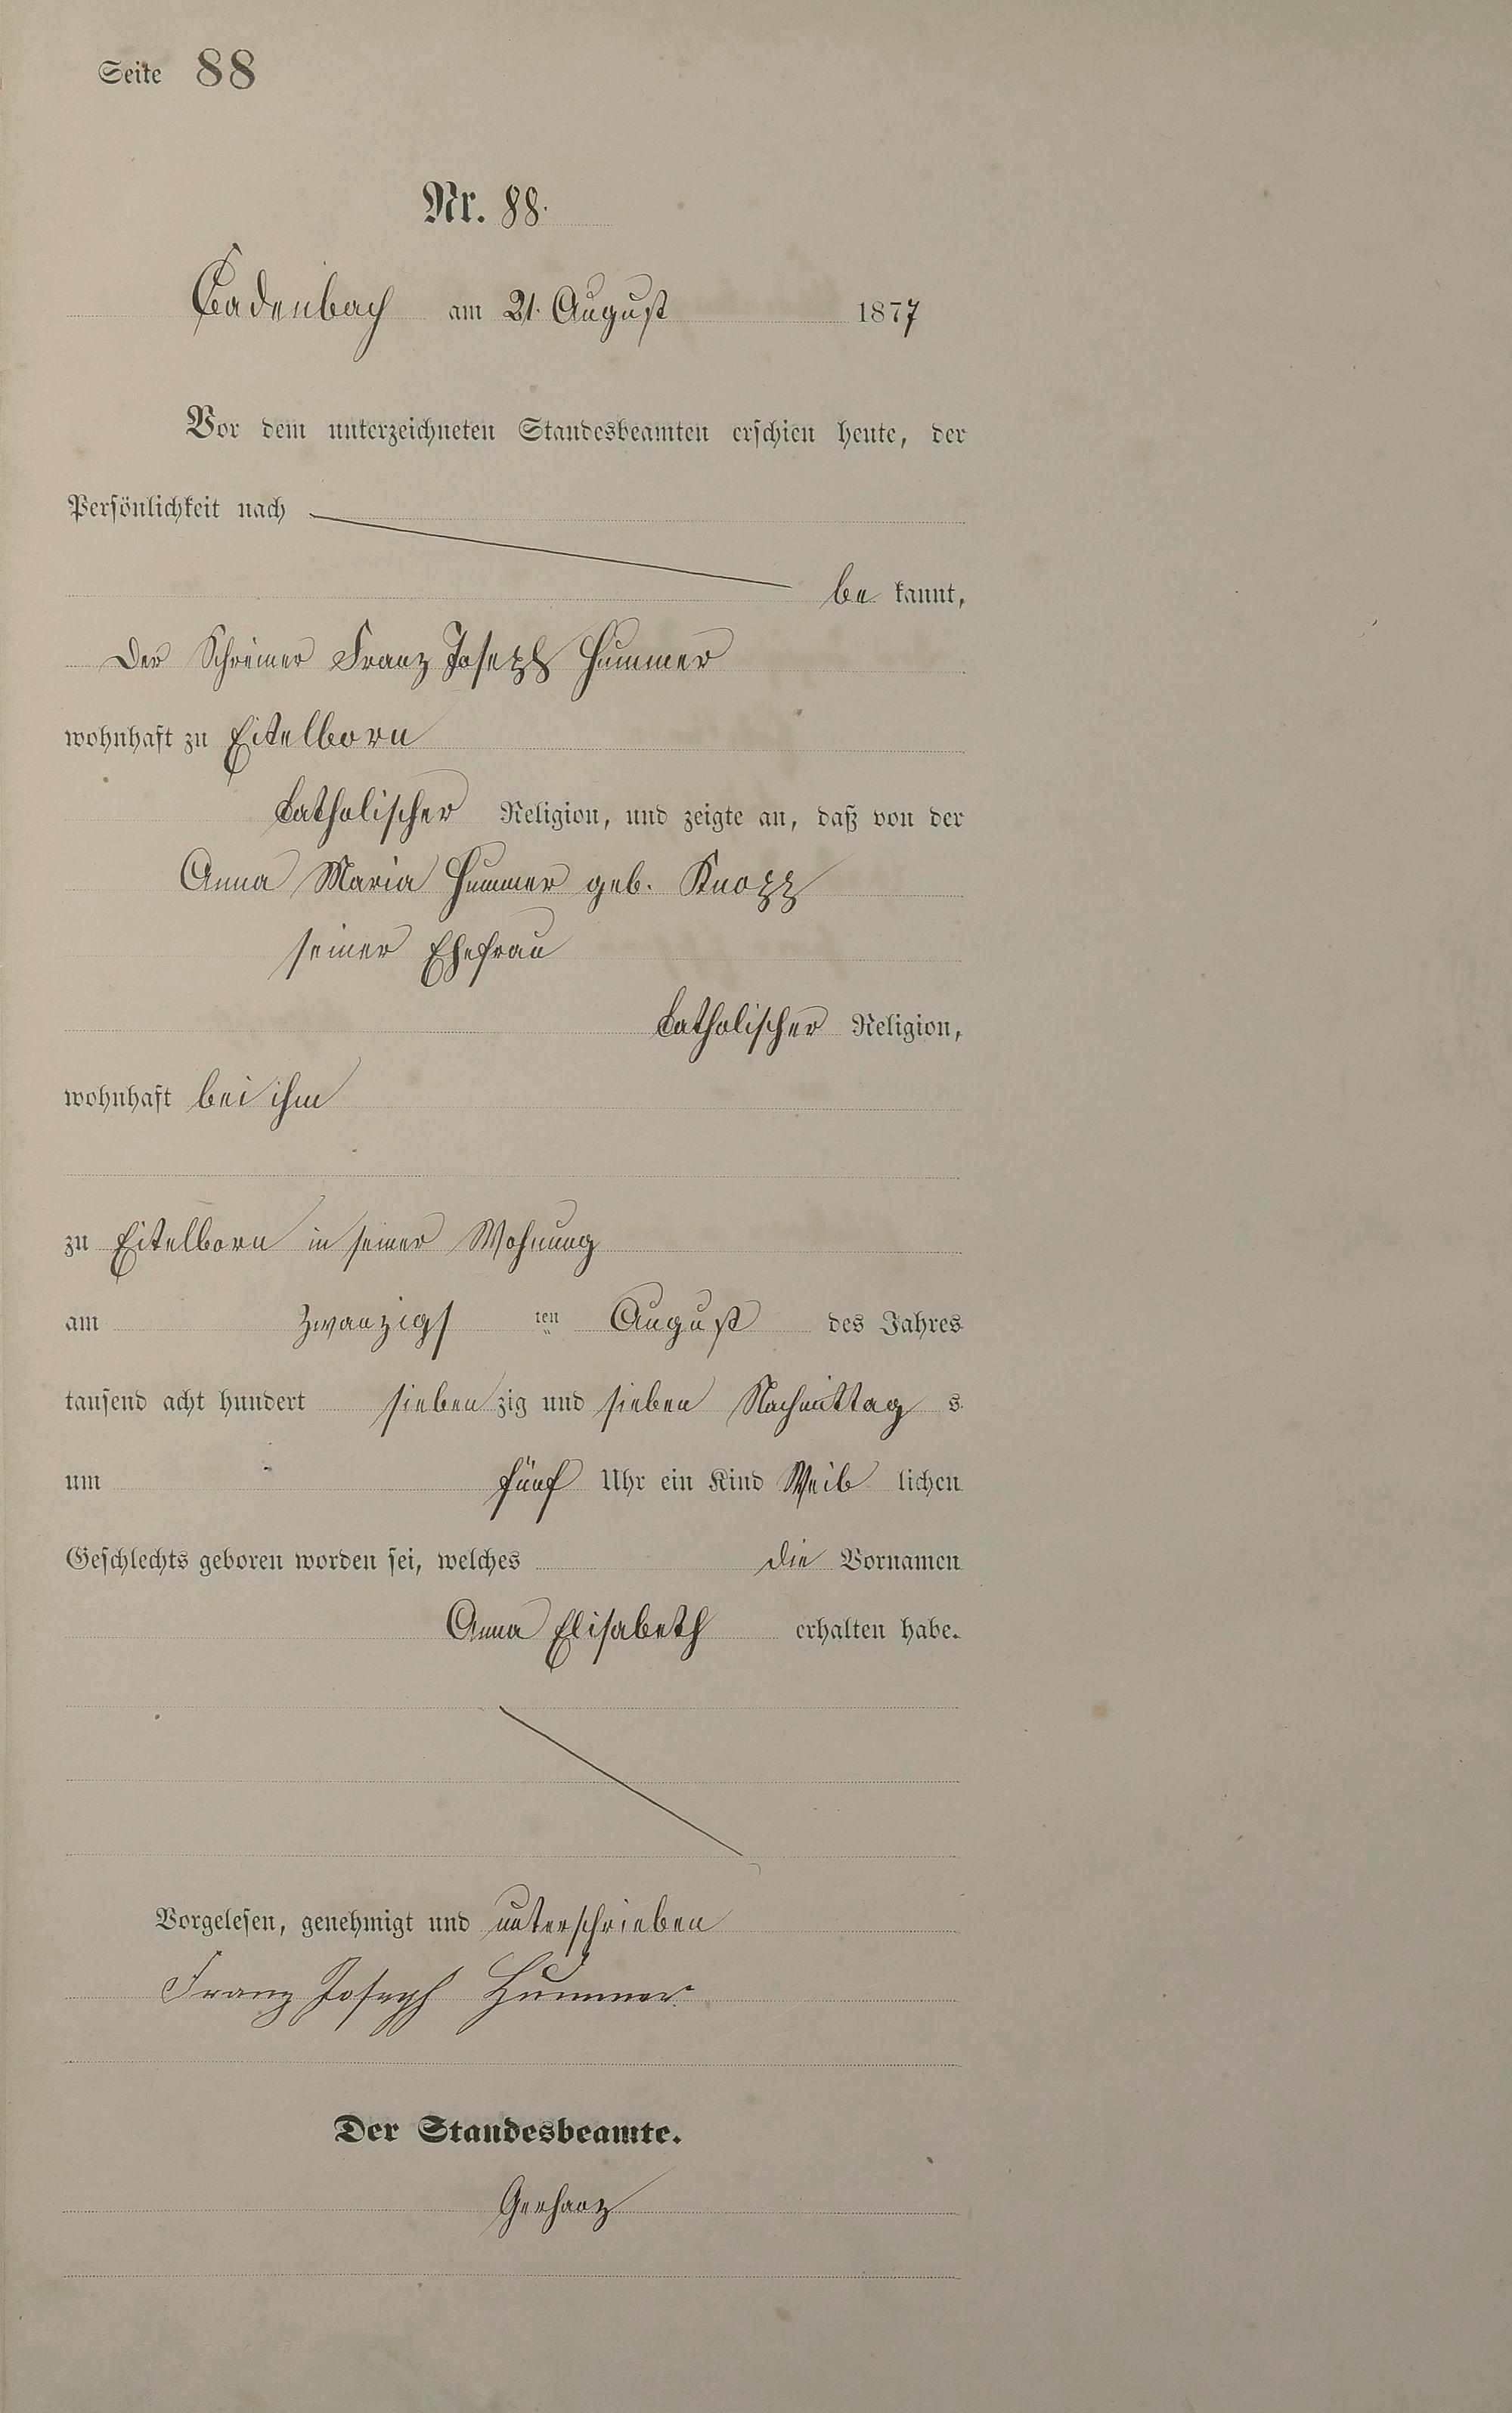 Seite 88
Nr. 88.
Cadenbach am 21. August 1877
Vor dem unterzeichneten Standesbeamten erschien heute, der
Persönlichkeit nach
be kannt,
der Schreiner Franz Joseph Hummer
wohnhaft zu Eitelborn
katholischer Religion, und zeigte an, daß von der
Anna Maria Hummer geb. Knopp
seiner Ehefrau
katholischer Religion,
wohnhaft bei ihm
zu Eitelborn in seiner Wohnung
am zwanzigs ten August des Jahres
tausend acht hundert sieben zig und sieben Nachmittag s
um fünf Uhr ein Kind Weib lichen
Geschlechts geboren worden sei, welches die Vornamen
Anna Elisabeth erhalten habe.
Vorgelesen, genehmigt und unterschrieben
Franz Joseph Hummer
Der Standesbeamte.
Gerharz